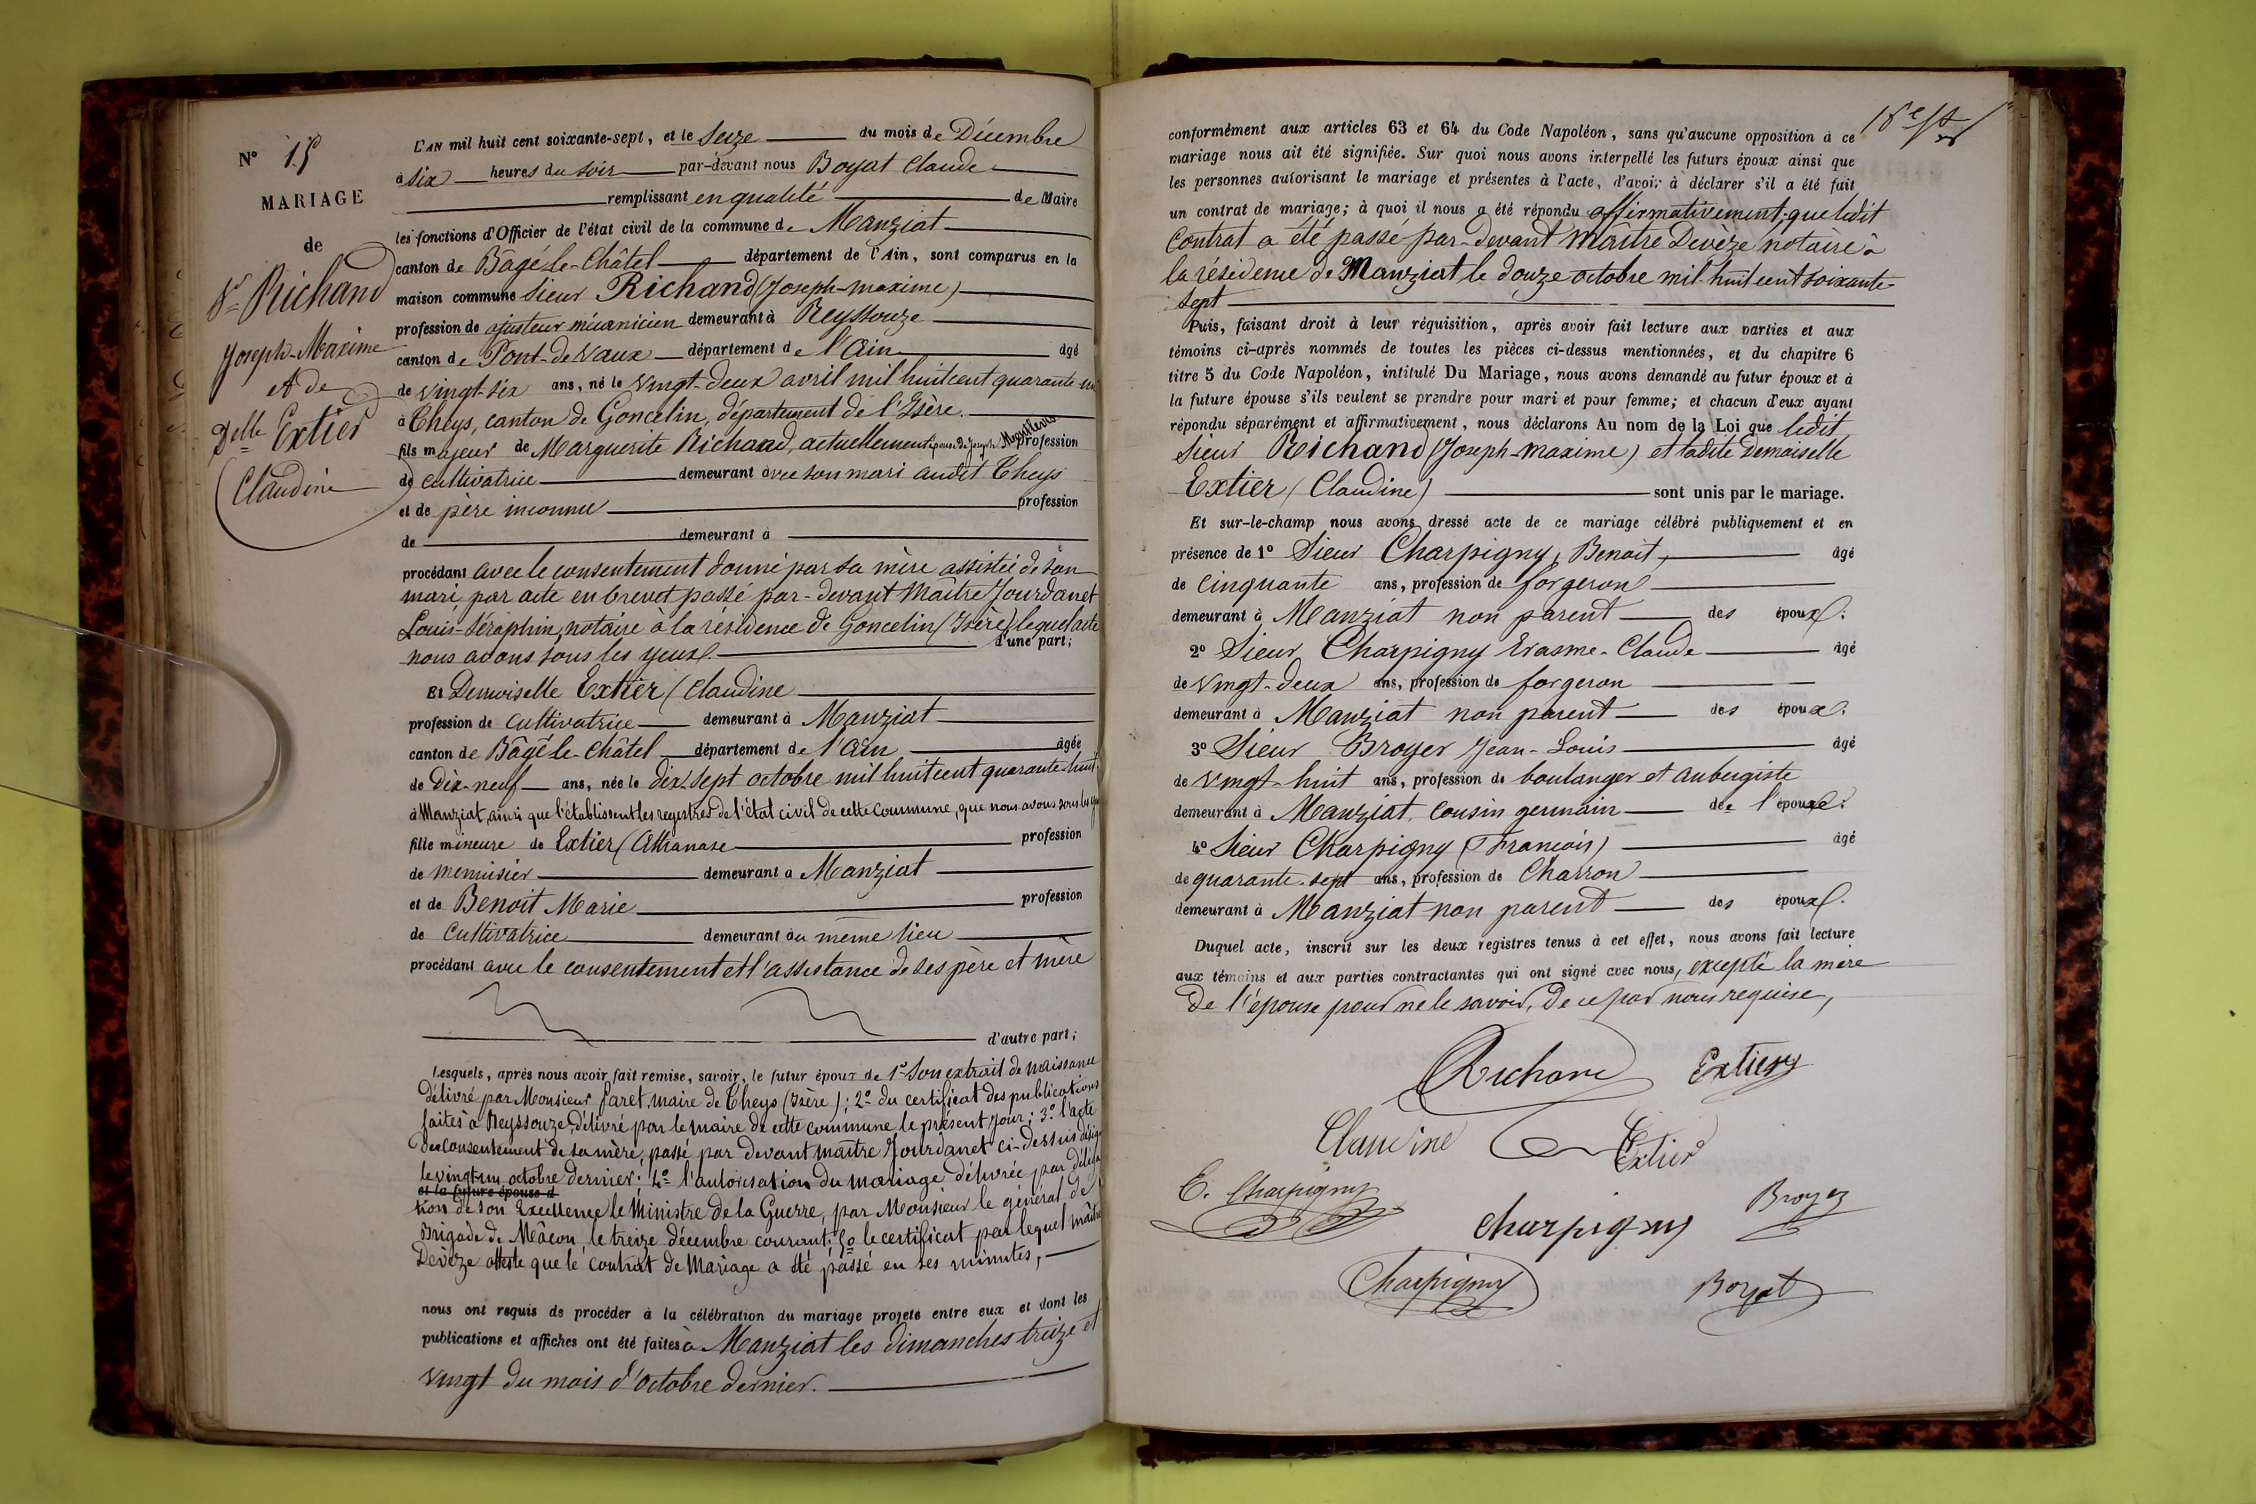 N° 15
MARIAGE
de
Sr Richand
Joseph-Maxime
et de
Delle Extier
(Claudine)
L'AN mil huit cent soixante-sept, et le seize du mois de Décembre
à six heures du soir par-devant nous Boyat Claude
remplissant en qualité de Maire
les fonctions d'Officier de l'état civil de la commune de Manziat
canton de Bagé-le-Châtel département de l'Ain, sont comparus en la
maison commune Sieur Richand (Joseph-maxime)
profession de ajusteur mécanicien demeurant à Reyssouze
canton de Pont-de-Vaux département de l'Ain âgé
de vingt-six ans, né le vingt-deux avril mil huit cent quarante un
à Theys, canton de Goncelin, département de l'Isère.
fils majeur de Marguerite Richand, actuellement épouse de Joseph profession
de cultivatrice demeurant avec son mari audit Theys
et de père inconnu profession
de demeurant à
procédant avec le consentement donné par sa mère assistée de son
mari, par acte en brevet passé par-devant Maître Jourdanet
Louis-Séraphin, notaire à la résidence de Goncelin (Isère) lequel acte
nous avons sous les yeux. d'une part;
Et Demoiselle Extier (Claudine
profession de cultivatrice demeurant à Manziat
canton de Bâgé-le-Châtel département de l'Ain âgée
de dix-neuf ans, née le dix-sept octobre mil huit cent quarante-huit
à Manziat, ainsi que l'établissent les registres de l'état civil de cette commune, que nous avons sous les yeux
fille mineure de Extier (Athanase profession
de menuisier demeurant à Manziat
et de Benoit Marie profession
de cultivatrice demeurant au même lieu
procédant avec le consentement et l'assistance de ses père et mère
d'autre part;
Lesquels, après nous avoir fait remise, savoir, le futur époux de 1° Son extrait de naissance
délivré par Monsieur faret, maire de Theys (Isère); 2° du certificat des publications
faites à Reyssouze, délivré par le maire de cette commune le présent jour; 3° l'acte
de consentement de sa mère, passé par devant maître Jourdanet ci-dessus désigné
le vingt-un octobre dernier; 4° l'autorisation du mariage délivrée par déléga
et la future épouse d
tion de son Excellence le Ministre de la Guerre, par Monsieur le général de
Brigade de Mâcon, le treize décembre courant; 5° le certificat par lequel maître
Devèze atteste que le contrat de Mariage a été passé en ses minutes,
nous ont requis de procéder à la célébration du mariage projeté entre eux et dont les
publications et affiches ont été faites à Manziat les dimanches treize et
vingt du mois d'octobre dernier.
conformément aux articles 63 et 64 du Code Napoléon, sans qu'aucune opposition à ce
mariage nous ait été signifiée. Sur quoi nous avons interpellé les futurs époux ainsi que
les personnes autorisant le mariage et présentes à l'acte, d'avoir à déclarer s'il a été fait
un contrat de mariage; à quoi il nous a été répondu affirmativement; que ledit
Contrat a été passé par-devant Maître Devèze notaire à
la résidence de Manziat le douze octobre mil huit cent soixante-
sept
Puis, faisant droit à leur réquisition, après avoir fait lecture aux parties et aux
témoins ci-après nommés de toutes les pièces ci-dessus mentionnées, et du chapitre 6
titre 5 du Code Napoléon, intitulé Du Mariage, nous avons demandé au futur époux et à
la future épouse s'ils veulent se prendre pour mari et pour femme; et chacun d'eux ayant
répondu séparément et affirmativement, nous déclarons Au nom de la Loi que ledit
Sieur Richand (Joseph-maxime) et ladite Demoiselle
Extier (Claudine) sont unis par le mariage.
Et sur-le-champ nous avons dressé acte de ce mariage célébré publiquement et en
présence de 1° Sieur Charpigny, Benoit, âgé
de cinquante ans, profession de forgeron
demeurant à Manziat non parent des époux.
2° Sieur Charpigny Erasme-Claude âgé
de vingt-deux ans, profession de forgeron
demeurant à Manziat non parent des époux.
3° Sieur Broyer Jean-Louis âgé
de vingt-huit ans, profession de boulanger et aubergiste
demeurant à Manziat, cousin germain de l'épouse.
4° Sieur Charpigny (François) âgé
de quarante-sept ans, profession de Charron
demeurant à Manziat non parent des époux.
Duquel acte, inscrit sur les deux registres tenus à cet effet, nous avons fait lecture
aux témoins et aux parties contractantes qui ont signé avec nous, excepté la mère
de l'épouse pour ne le savoir, de ce par nous requise,
Richand Extier
Claudine Extier
E. Charpigny Charpigny Broyer
Charpigny Boyat